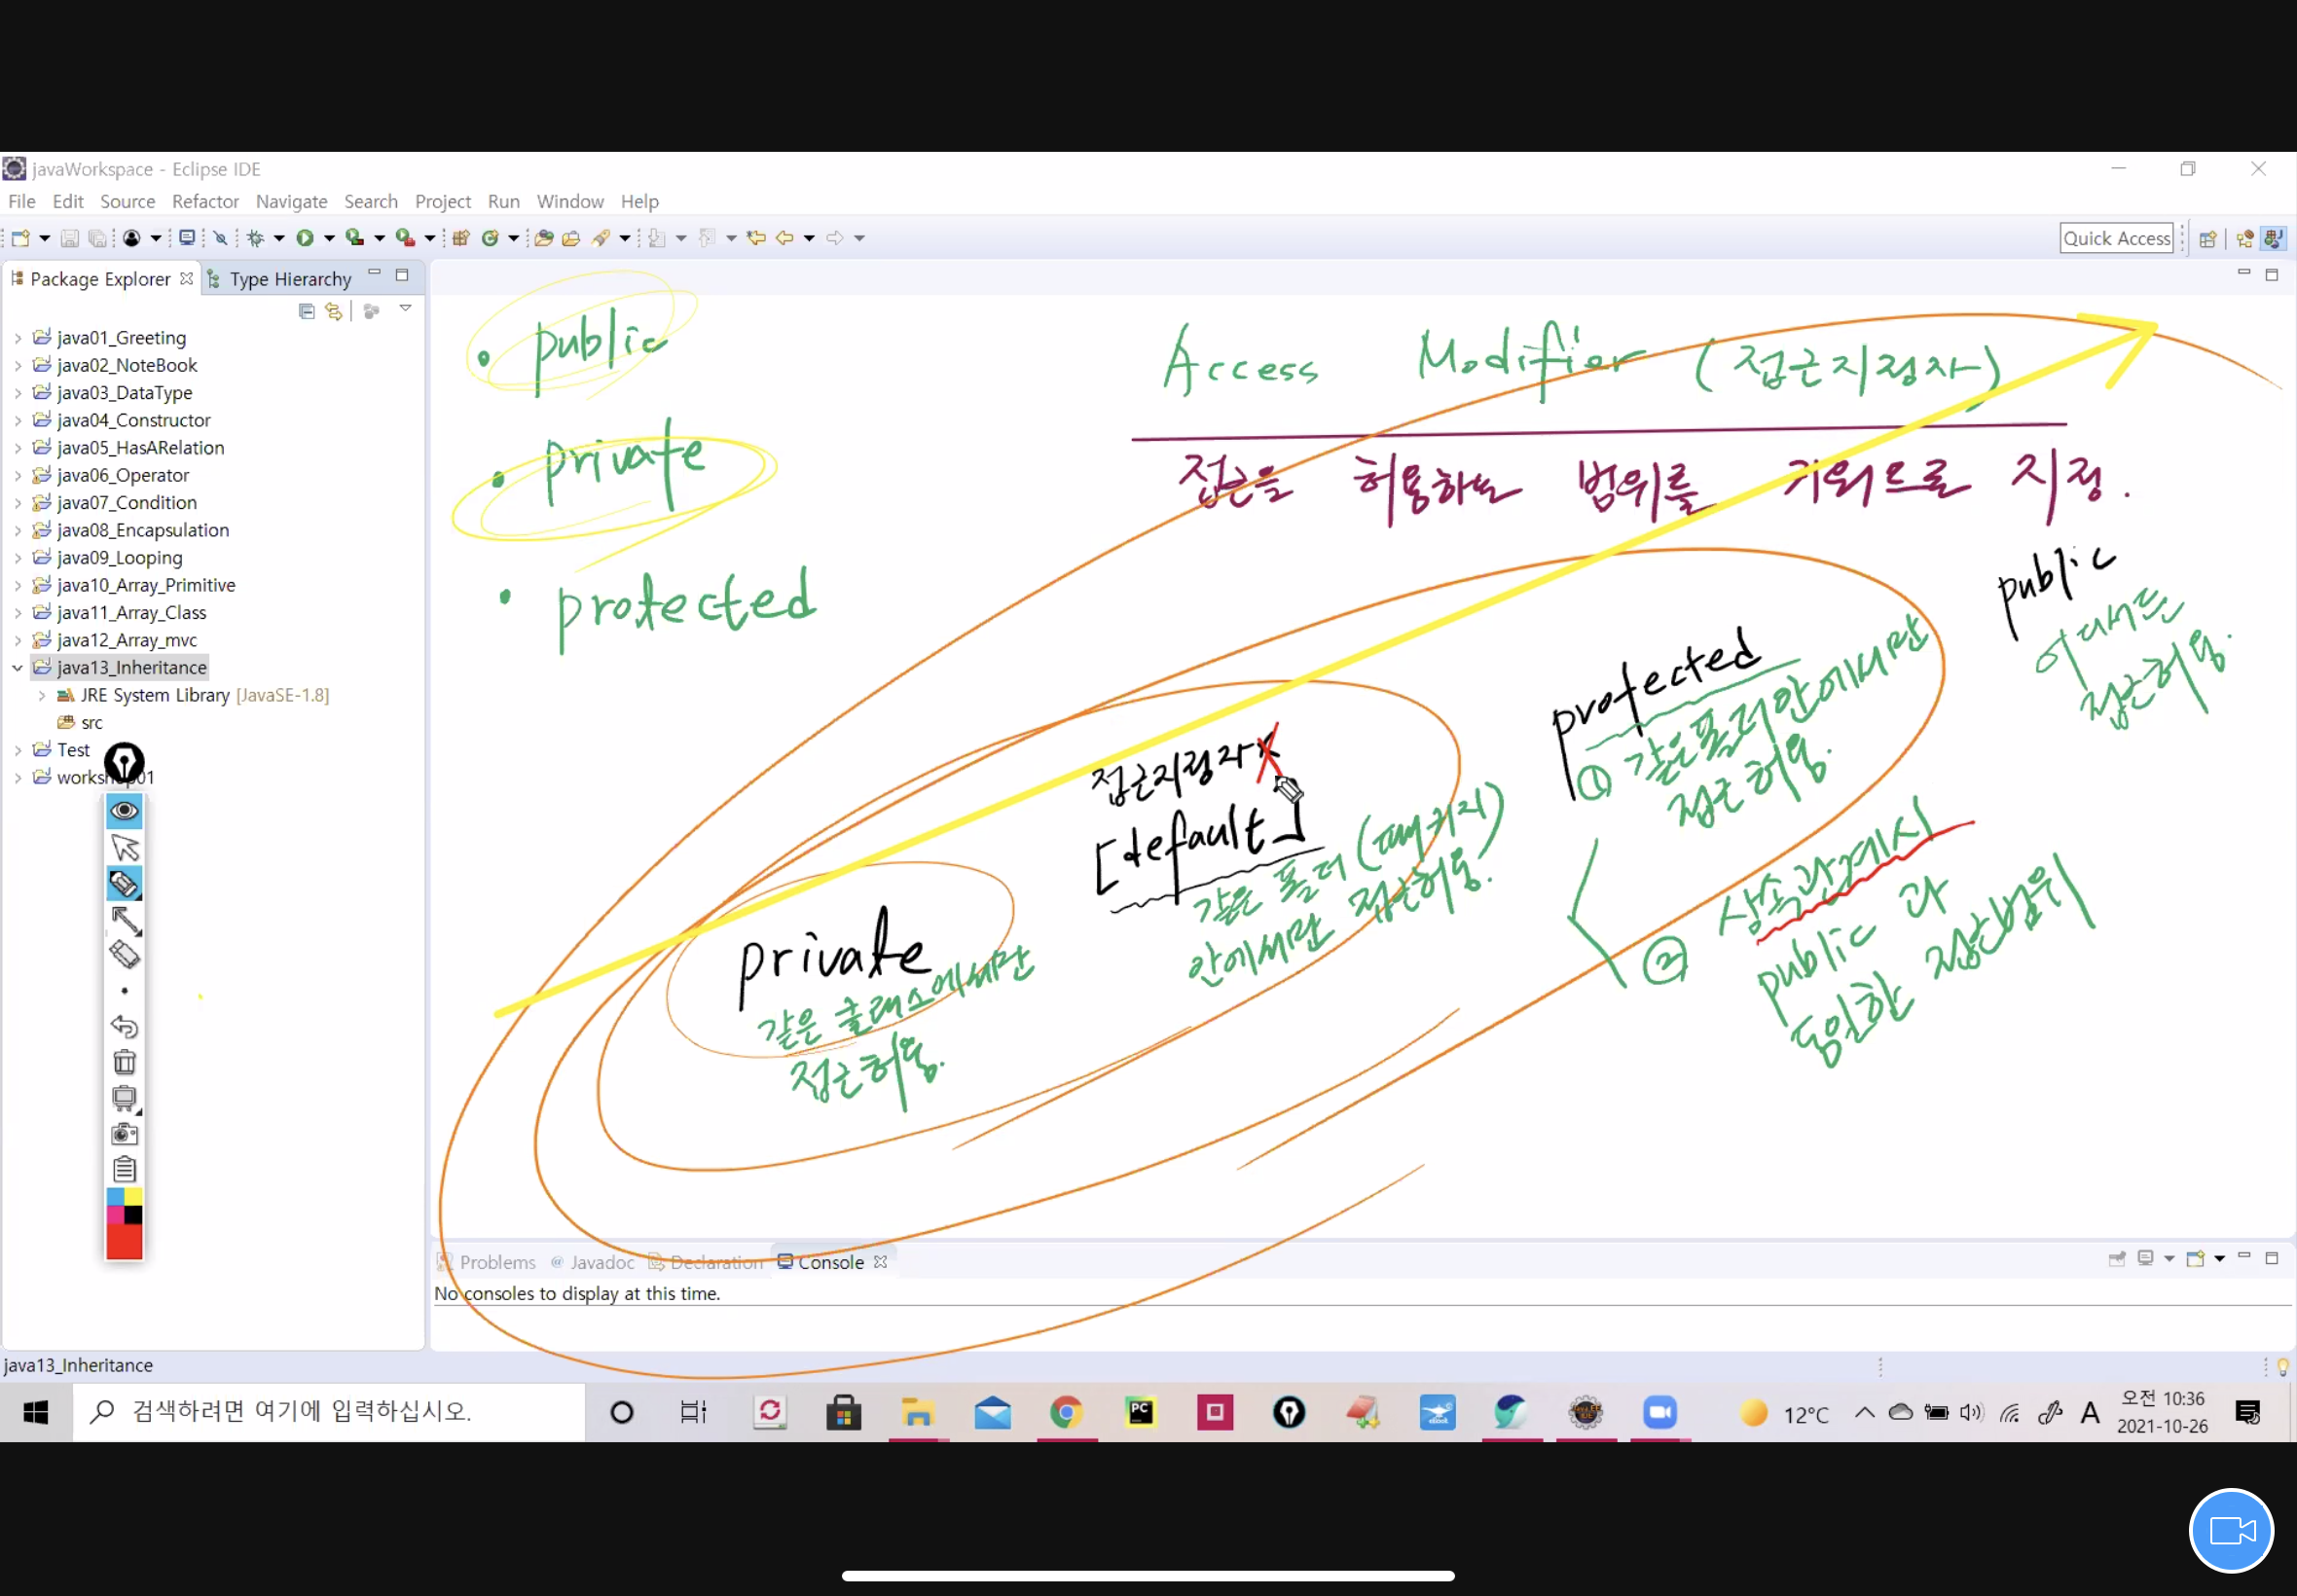 javaWorkspace - Eclipse IDE
File Edit Source Refactor Navigate Search Project Run Window Help
Quick Access
Package Explorer Type Hierarchy
java01_Greeting
java02_NoteBook
java03_DataType
java04_Constructor
java05_HasARelation
java06_Operator
java07_Condition
java08_Encapsulation
java09_Looping
java10_Array_Primitive
java11_Array_Class
java12_Array_mvc
java13_Inheritance
JRE System Library [JavaSE-1.8]
src
Test
workshop01
• public
• private
• protected
Access Modifier (접근지정자)
접근을 허용하는 범위를 키워드로 지정.
public
어디서든
접근허용.
protected
① 같은폴더안에서만
접근 허용.
② 상속관계시
public 과
동일한 접근범위
접근지정자 X
[default]
같은 폴더 (패키지)
안에서만 접근허용.
private
같은 클래스에서만
접근허용.
Problems Javadoc Declaration Console
No consoles to display at this time.
java13_Inheritance
검색하려면 여기에 입력하십시오.
12°C
A
오전 10:36
2021-10-26